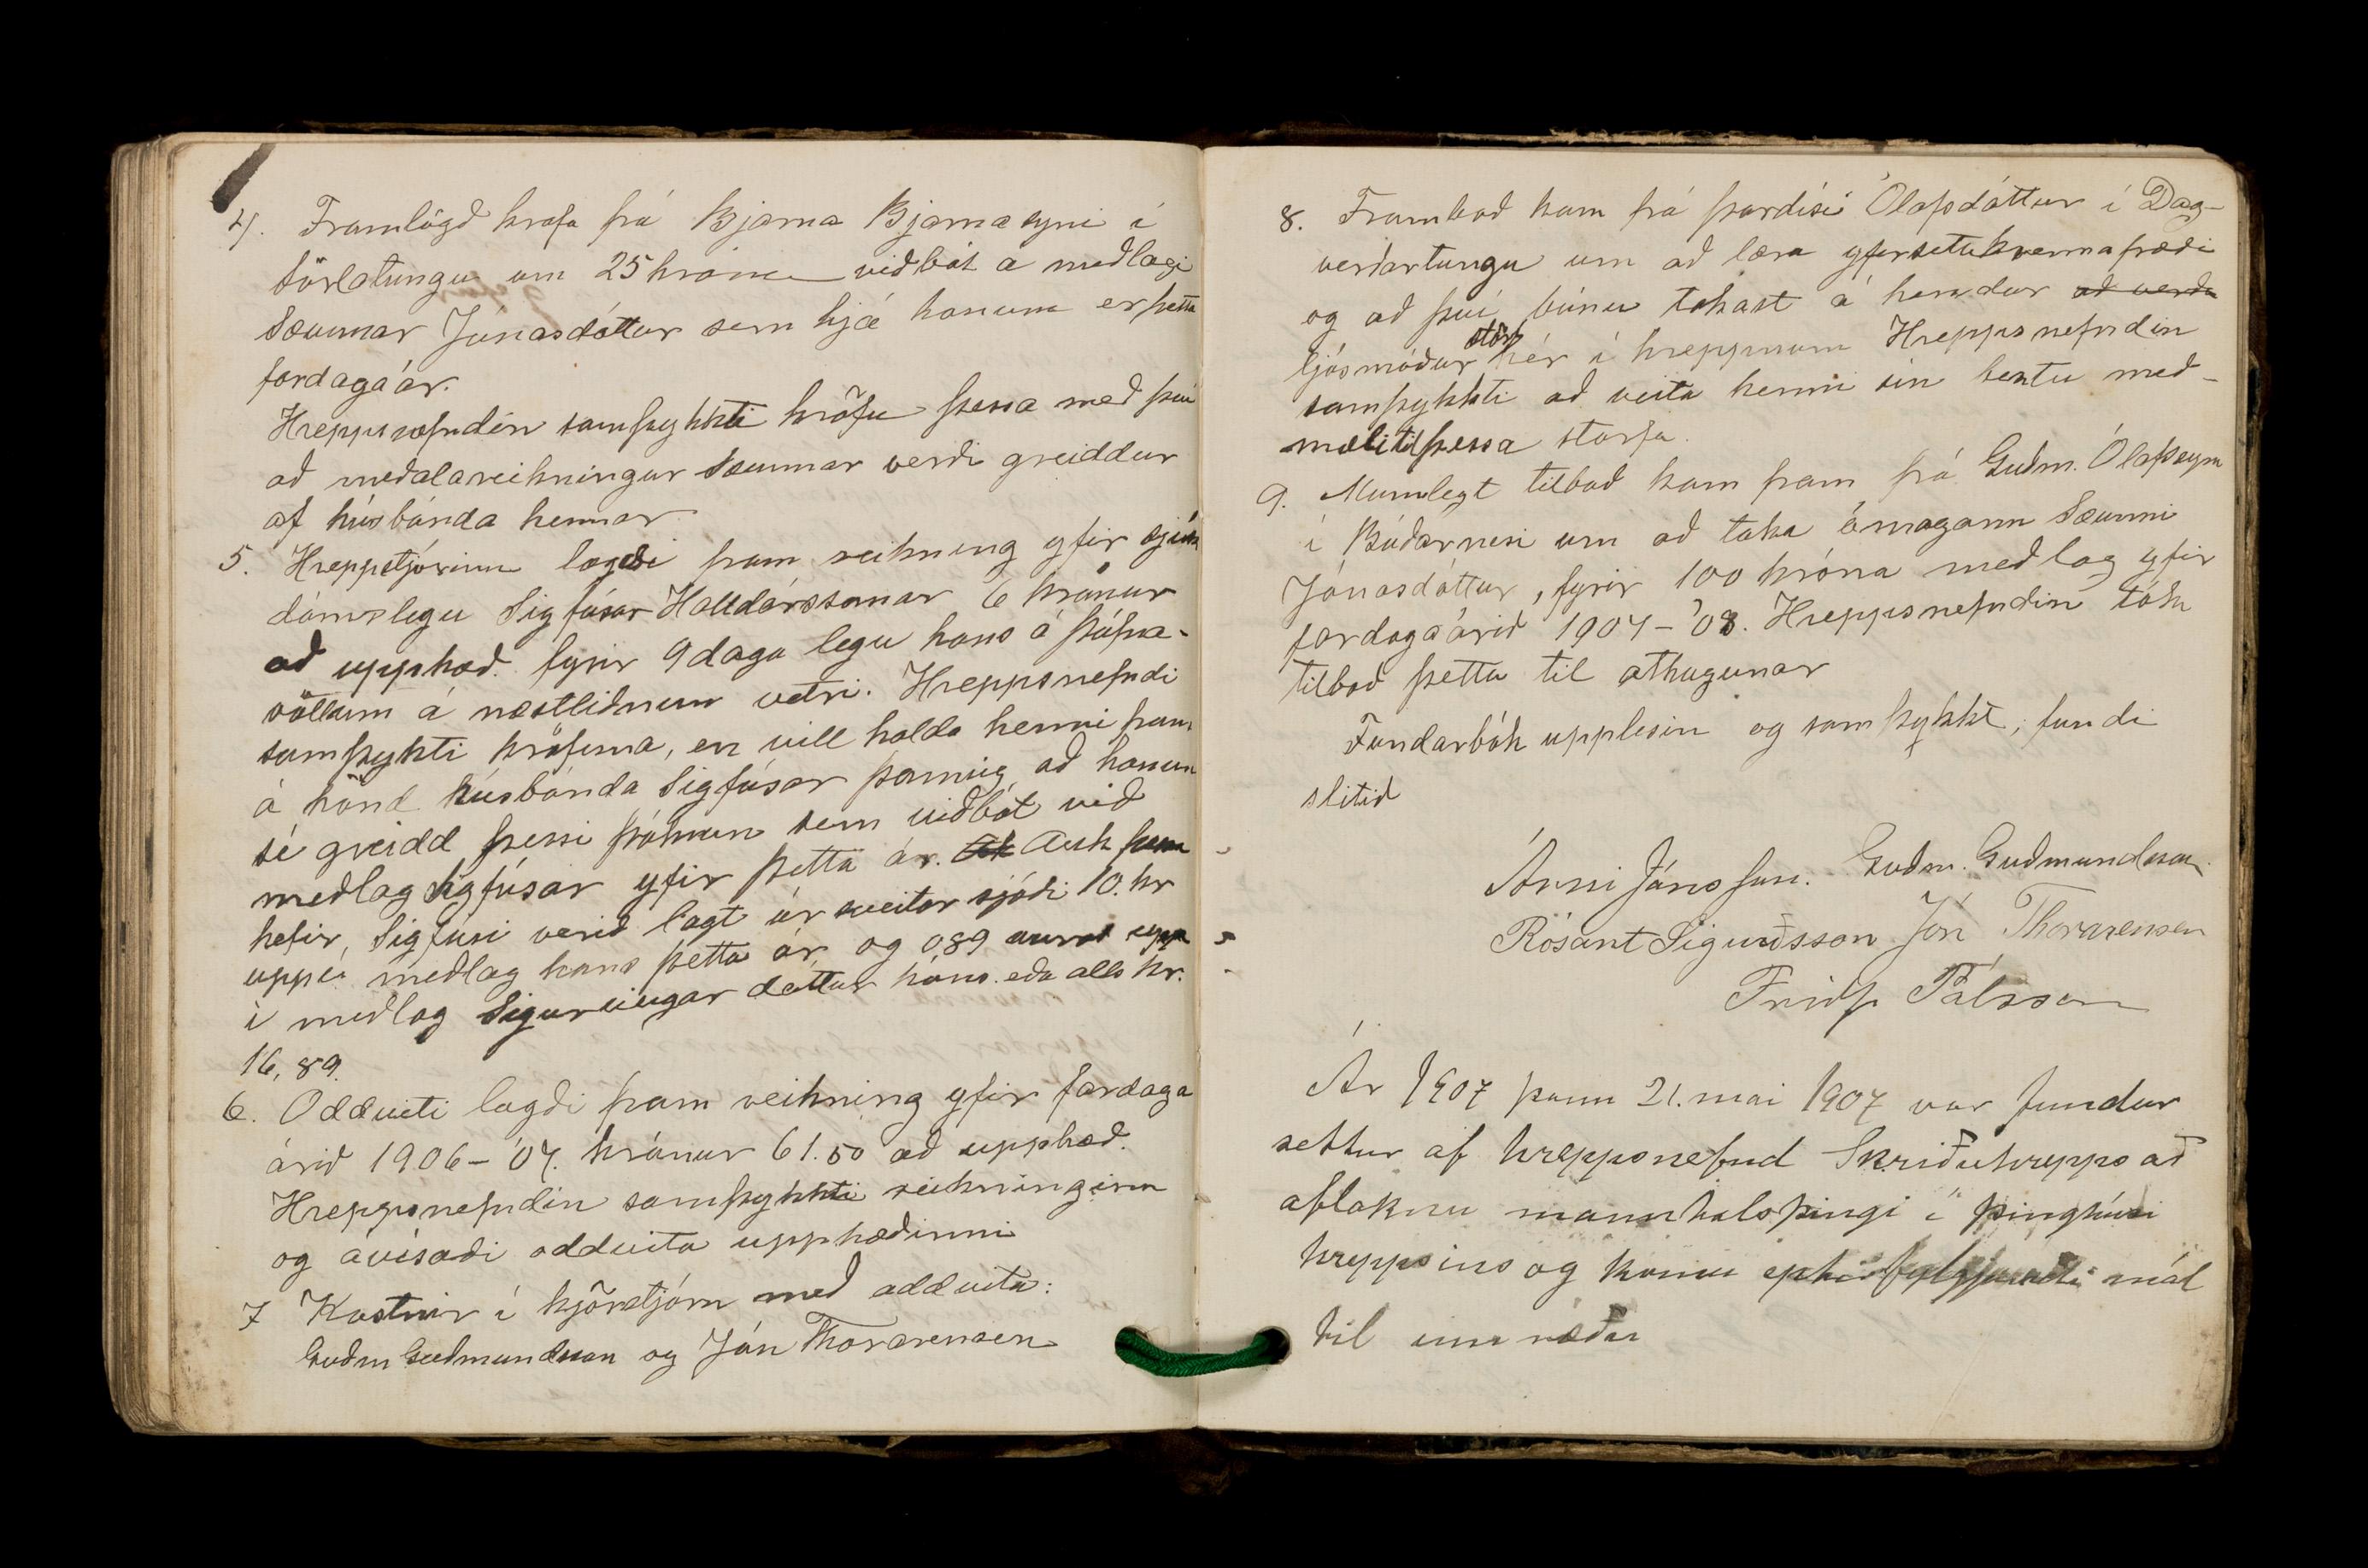 4. Framlögð krafa frá Bjarna Bjarnasyni í
Sörlatungu um 25 króna viðbót á meðlagi
Sæunnar Jónasdóttur sem hjá honum er þetta
fardagaár.
Hreppsnefndin samþykkti kröfu þessa með því
að meðalareikningur Sæunnar verði greiddur
af húsbónda hennar
5. Hreppstjórinn lagði fram reikning yfir sjúk
dómslegu Sigfúsar Halldórssonar 6 krónur
að upphæð. fyrir 9 daga legu hans á Þúfna-
völlum á næstliðnum vetri. Hreppsnefndi
samþykti kröfuna, en vill halda henni fram
á hönd húsbónda Sigfúsar þannig að honum
sé greidd þessi þóknun sem viðbót við
meðlag Sigfúsar yfir þetta ár. Auk þess
hefir, Sigfúsi verið lagt úr sveitar sjóði 10. kr
uppí meðlag hans þetta ár, og 0,89 aurar upp
í meðlag Sigurveigar dóttur hans. eða alls kr.
16,89.
6. Oddviti lagði fram reikning yfir fardaga
árið 1906-'07. krónur 61.50 að upphæð.
Hreppsnefndin samþykkti reikninginn
og ávísaði oddvita upphæðinni
7 Kostnir í kjörstjórn með oddvita:
Guðm Guðmundsson og Jón Thorarensen
8. Framboð kom frá Þordísi Ólafsdóttur í Dag-
verðartungu um að læra yfirsetukvennafræði
og að því búnu takast á hendur að verða
ljósmóður störf hér í hreppnum Hreppsnefndin
samþykkti að veita henni sín bestu með-
mæli til þessa starfa.
9. Munnlegt tilboð kom fram frá Guðm. Ólafssyni
í Búðarnesi um að taka ómagann Sæunni
Jónasdóttur, fyrir 100 króna meðlag yfir
fardagaárið 1907-'08. Hreppsnefndin tók
tilboð þetta til athugunar
Fundarbók upplesin og samþykkt, fundi
slitið
Árni Jónsson. Guðm. Guðmundsson
Rósant Sigurðsson Jón Thorarensen
Friðf Pálsson
Ár 1907 þann 21. mai 1907 var fundur
settur af hreppsnefnd Skriðuhrepps að
afloknu manntalsþingi í þinghúsi
hreppsins og komu eptirfylgjandi mál
til umræðu